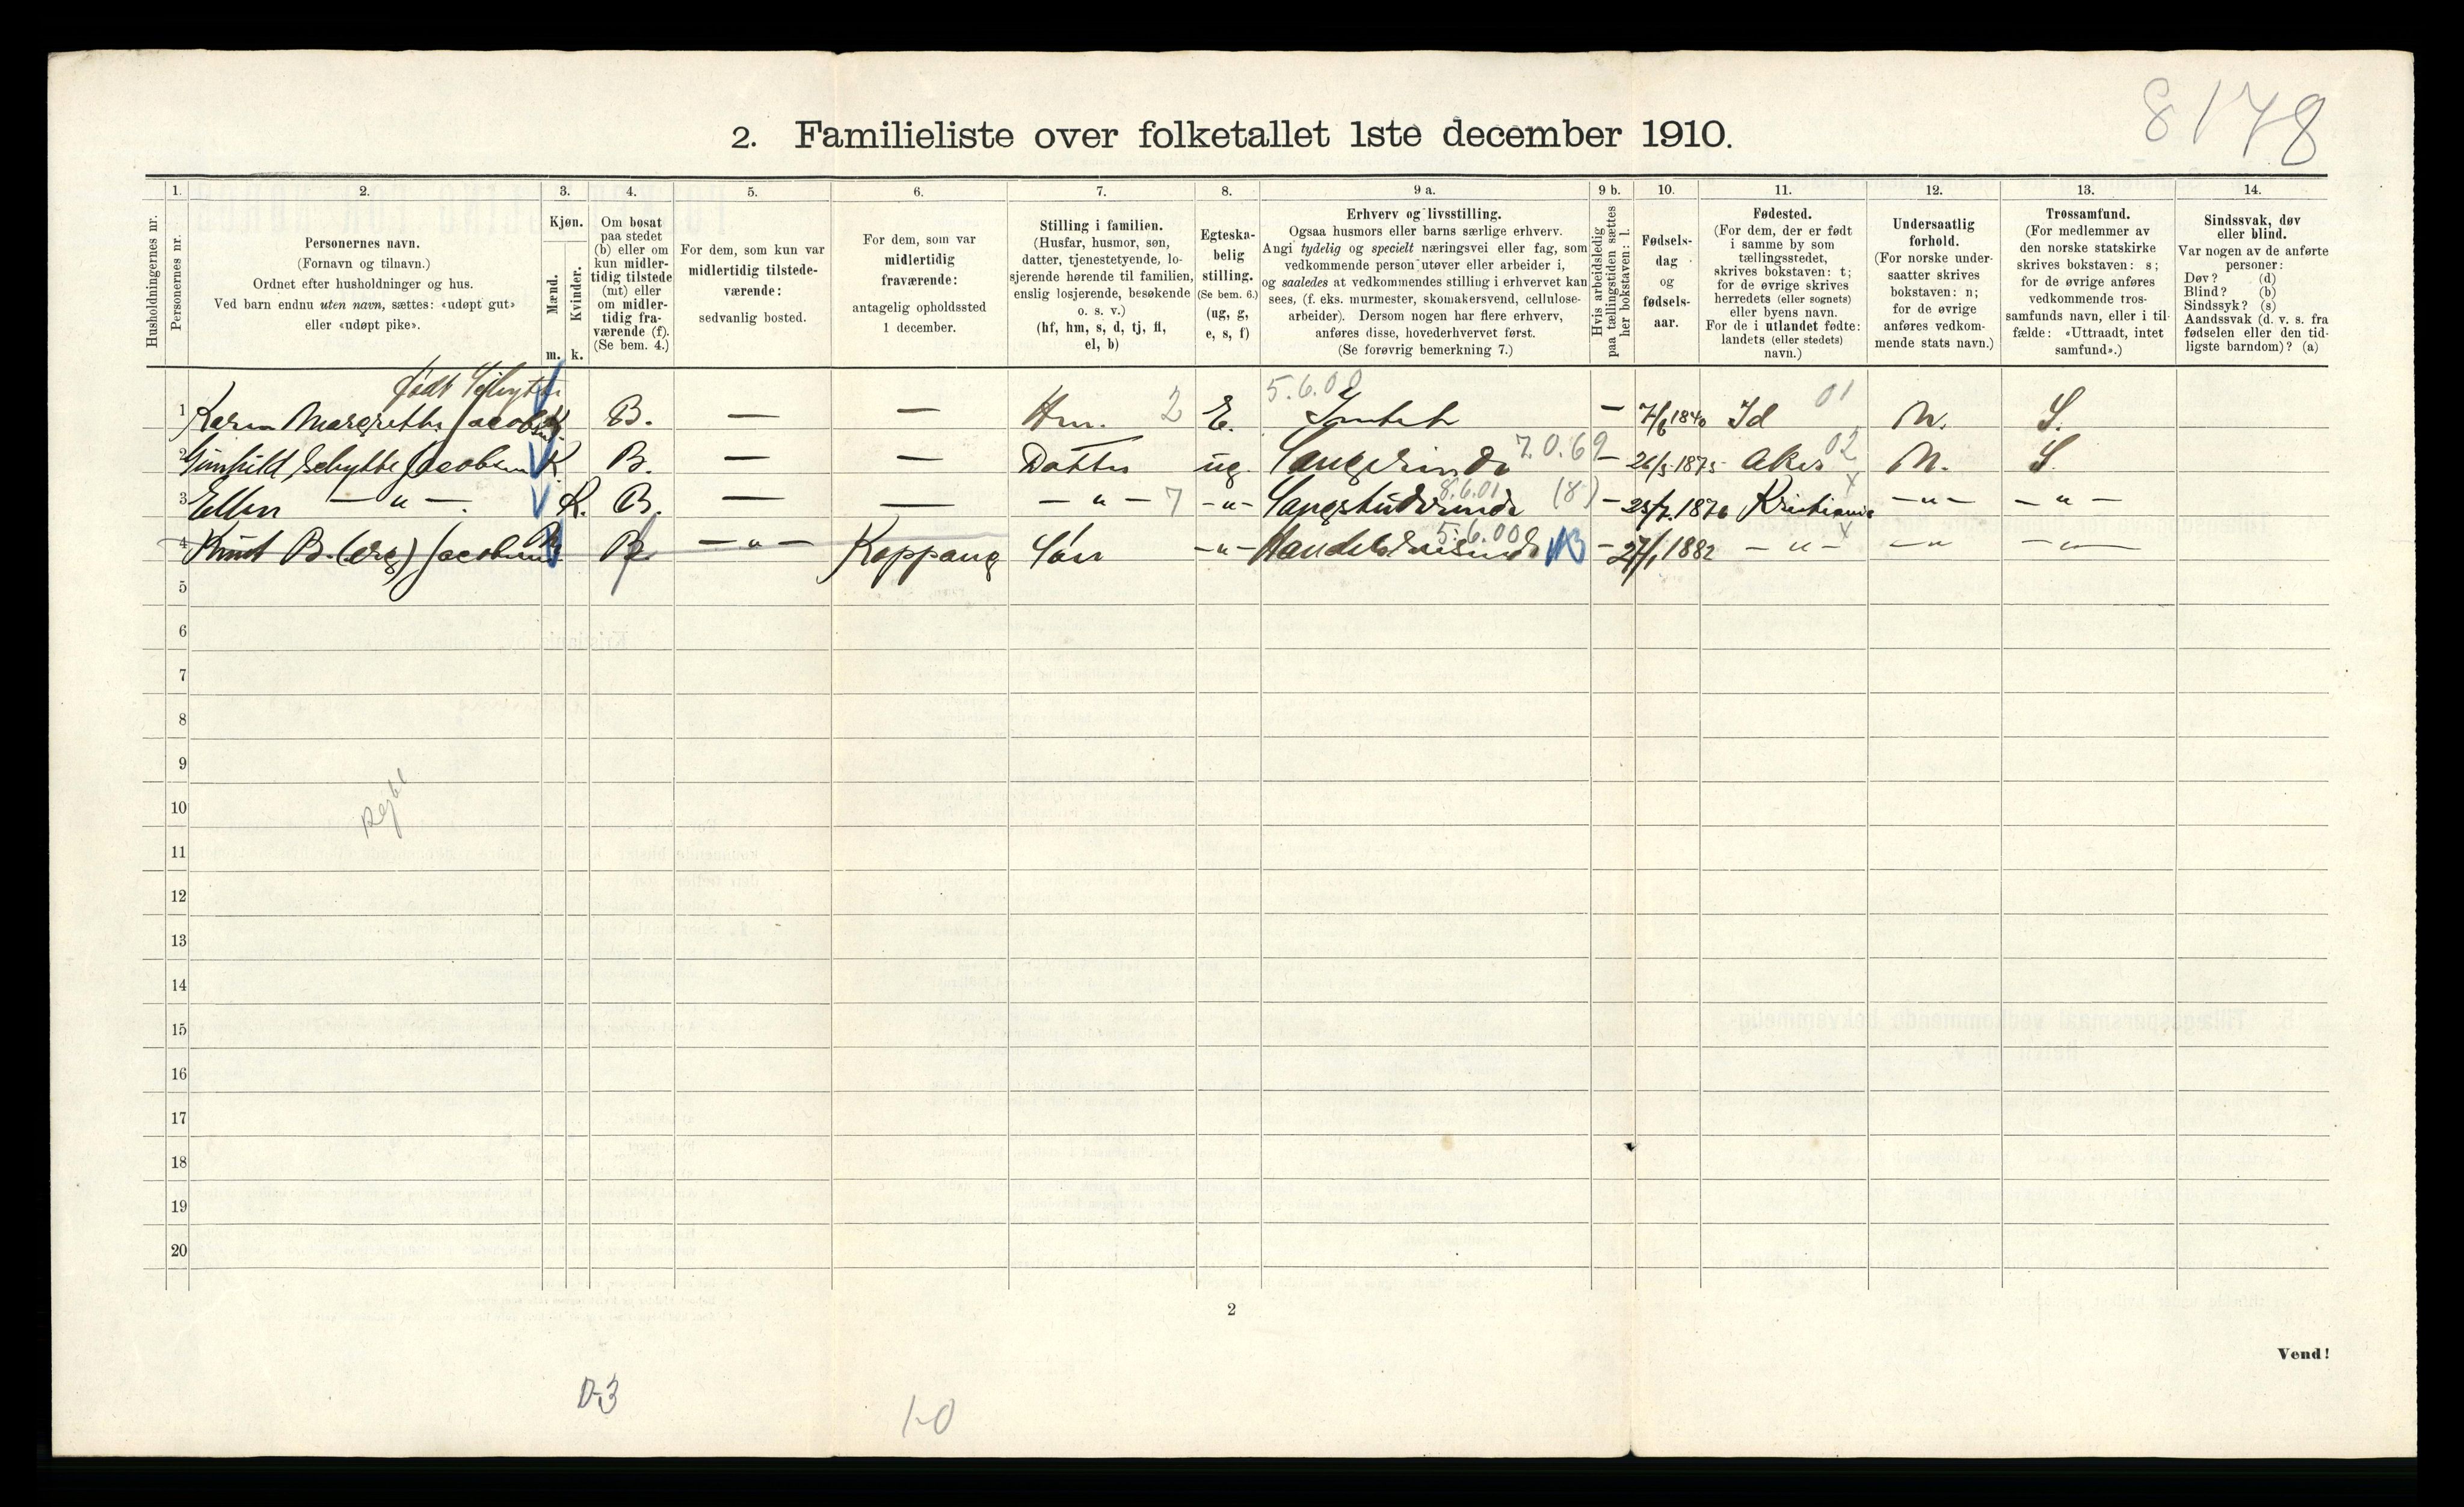 8178
2. Familieliste over folketallet 1ste december 1910.
1. 2. 3. 4. 5. 6. 7. 8. 9 a. 9 b. 10. 11. 12. 13. 14.
Husholdningernes nr.
Personernes nr.
Personernes navn.
(Fornavn og tilnavn.)
Ordnet efter husholdninger og hus.
Ved barn endnu uten navn, sættes: «udøpt gut»
eller «udøpt pike».
Kjøn.
Mænd.
Kvinder.
m. k.
Om bosat
paa stedet
(b) eller om
kun midler-
tidig tilstede
(mt) eller
om midler-
tidig fra-
værende (f).
(Se bem. 4.)
For dem, som kun var
midlertidig tilstede-
værende:
sedvanlig bosted.
For dem, som var
midlertidig
fraværende:
antagelig opholdssted
1 december.
Stilling i familien.
(Husfar, husmor, søn,
datter, tjenestetyende, lo-
sjerende hørende til familien,
enslig losjerende, besøkende
o. s. v.)
(hf, hm, s, d, tj, fl,
el, b)
Egteska-
belig
stilling.
(Se bem. 6.)
(ug, g,
e, s, f)
Erhverv og livsstilling.
Ogsaa husmors eller barns særlige erhverv.
Angi tydelig og specielt næringsvei eller fag, som
vedkommende person utøver eller arbeider i,
og saaledes at vedkommendes stilling i erhvervet kan
sees, (f. eks. murmester, skomakersvend, cellulose-
arbeider). Dersom nogen har flere erhverv,
anføres disse, hovederhvervet først.
(Se forøvrig bemerkning 7.)
Hvis arbeidsledig
paa tællingstiden sættes
her bokstaven: l.
Fødsels-
dag
og
fødsels-
aar.
Fødested.
(For dem, der er født
i samme by som
tællingsstedet,
skrives bokstaven: t;
for de øvrige skrives
herredets (eller sognets)
eller byens navn.
For de i utlandet fødte:
landets (eller stedets)
navn.)
Undersaatlig
forhold.
(For norske under-
saatter skrives
bokstaven: n;
for de øvrige
anføres vedkom-
mende stats navn.)
Trossamfund.
(For medlemmer av
den norske statskirke
skrives bokstaven: s;
for de øvrige anføres
vedkommende tros-
samfunds navn, eller i til-
fælde: «Uttraadt, intet
samfund».)
Sindssvak, døv
eller blind.
Var nogen av de anførte
personer:
Døv? (d)
Blind? (b)
Sindssyk? (s)
Aandssvak (d. v. s. fra
fødselen eller den tid-
ligste barndom)? (a)
født Schytte 5.6.00 01
1 Karen Margrethe Jacobsen K. B. — — Hm. 2 E. — 7/6 1840 Id N. S.
2 Gunhild Schytte Jacobsen K. B. — — Datter ug. Sangerinde 7.0.69 — 26/3 1875 Aker 02 N. S.
3 Ellen —„—. K. B. — — —„— 7 —„— Sangstuderende 8.6.01 (8) — 1876 Kristiania x —„— —„—
4 Knut B. (erg) Jacobsen m B f. —„— Koppang Søn —„— Handelsreisende 5.6.00 — 27/1 1882 —„— x —„— —„—
5
6
7
8
9
10
11
12
13
14
15
16
17
18
19
20
2
Vend!
0-3
1-0